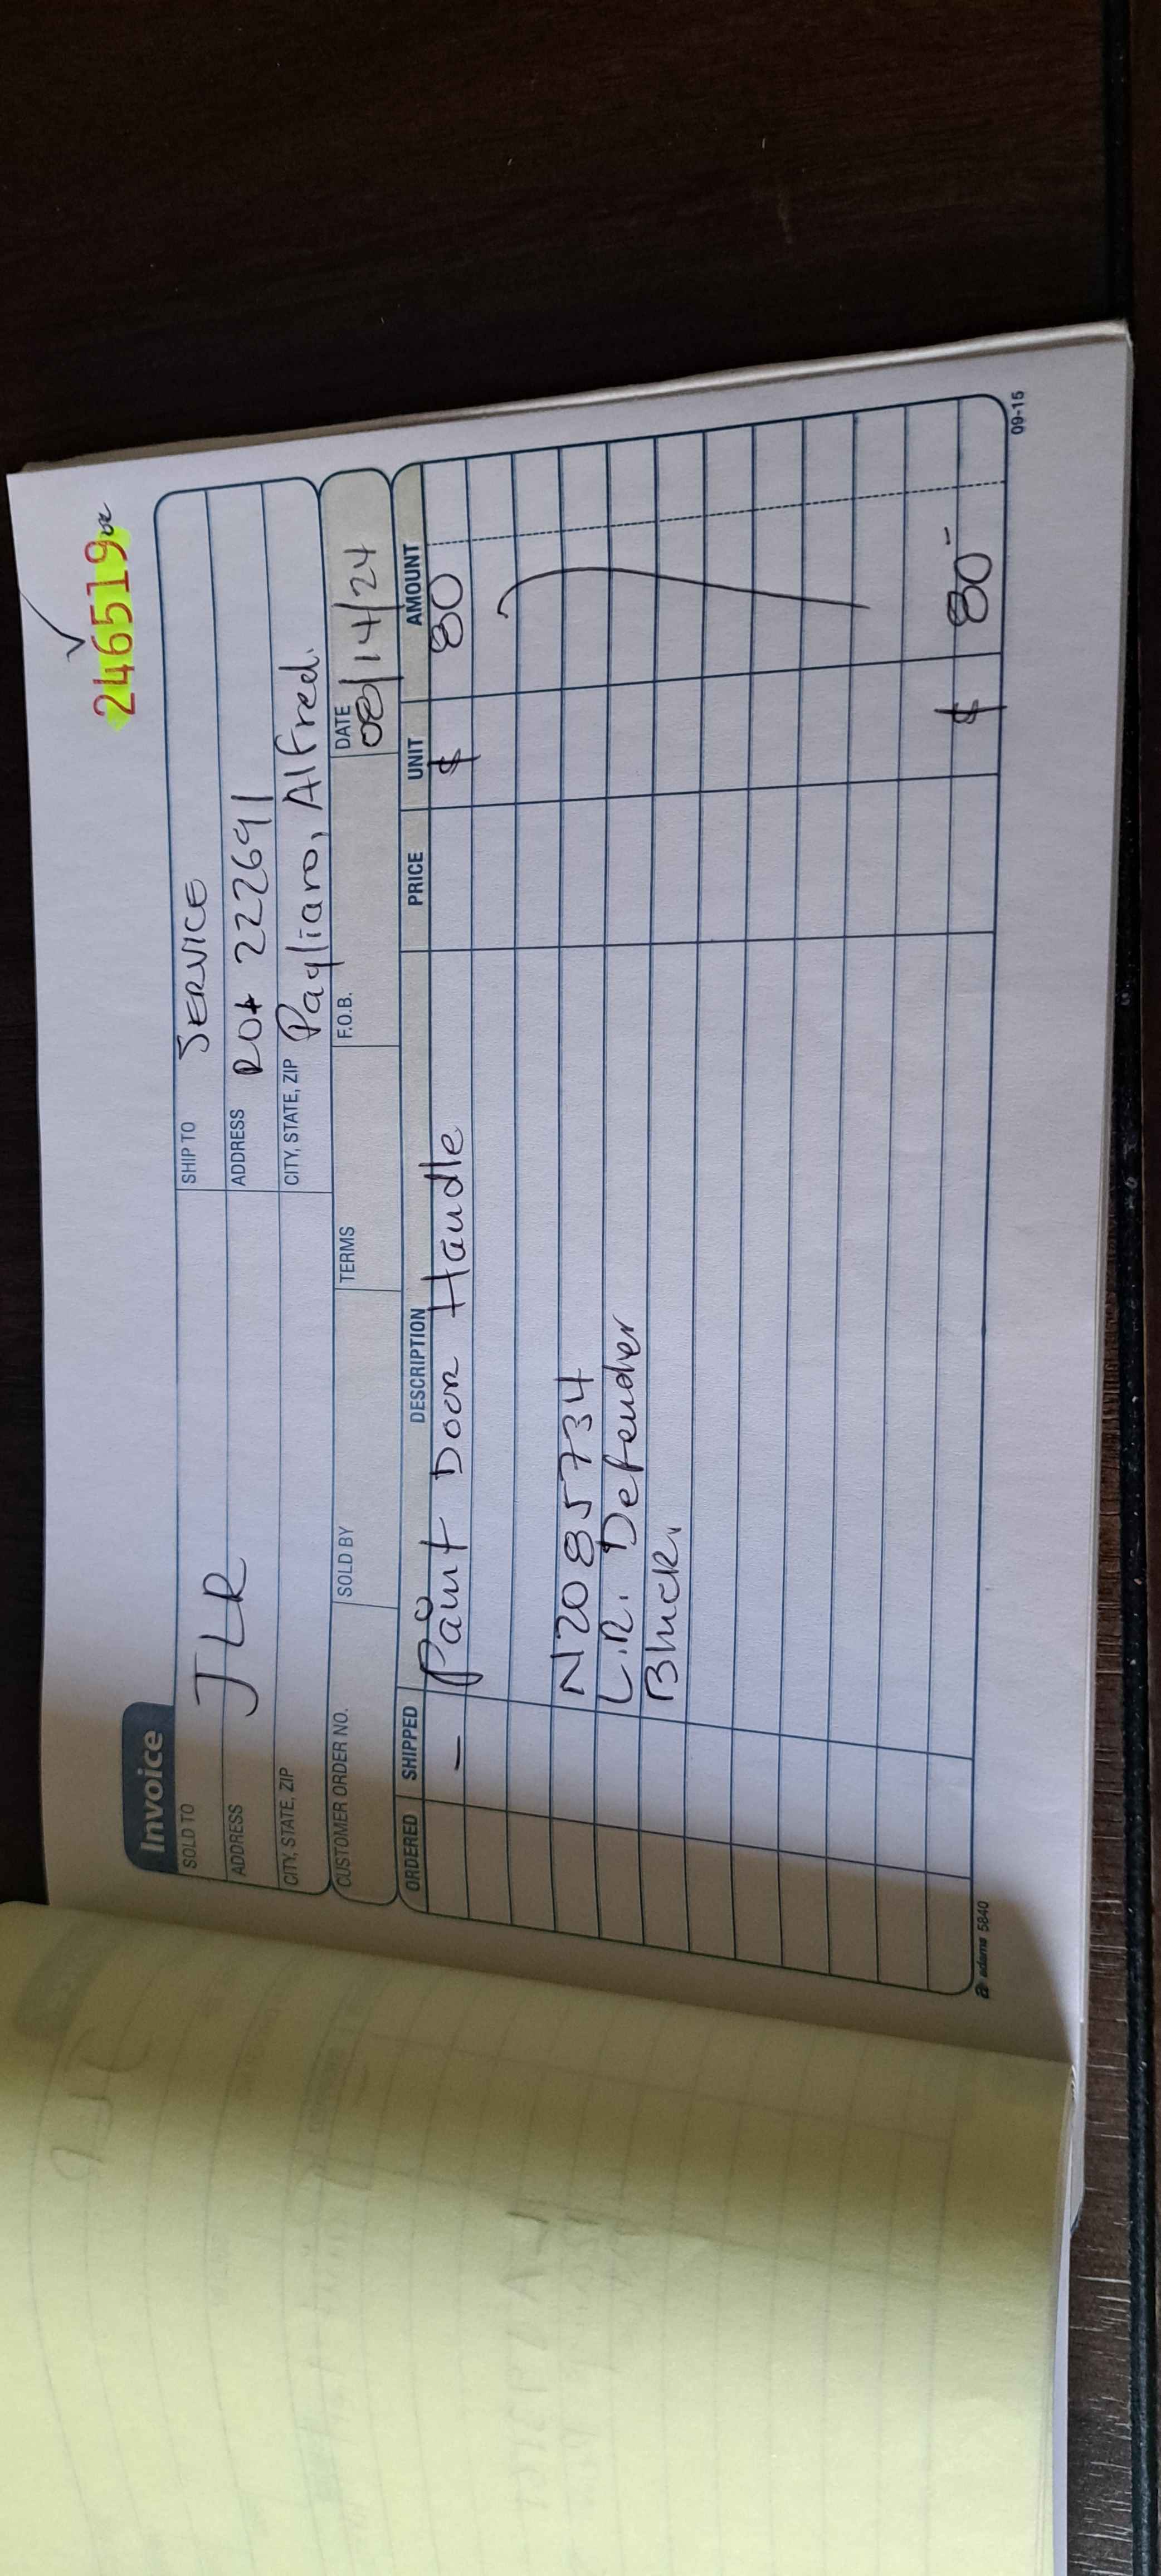 246519
Invoice
SOLD TO JLR
SHIP TO SERVICE
ADDRESS
ADDRESS RO# 222691
CITY, STATE, ZIP
CITY, STATE, ZIP Pagliaro, Alfred.
CUSTOMER ORDER NO. SOLD BY TERMS F.O.B. DATE 08/14/24
ORDERED SHIPPED DESCRIPTION PRICE UNIT AMOUNT
– Paint Door Handle $ 80
N2085734
L.R. Defender
Black.
$ 80-
adams 5840
09-15